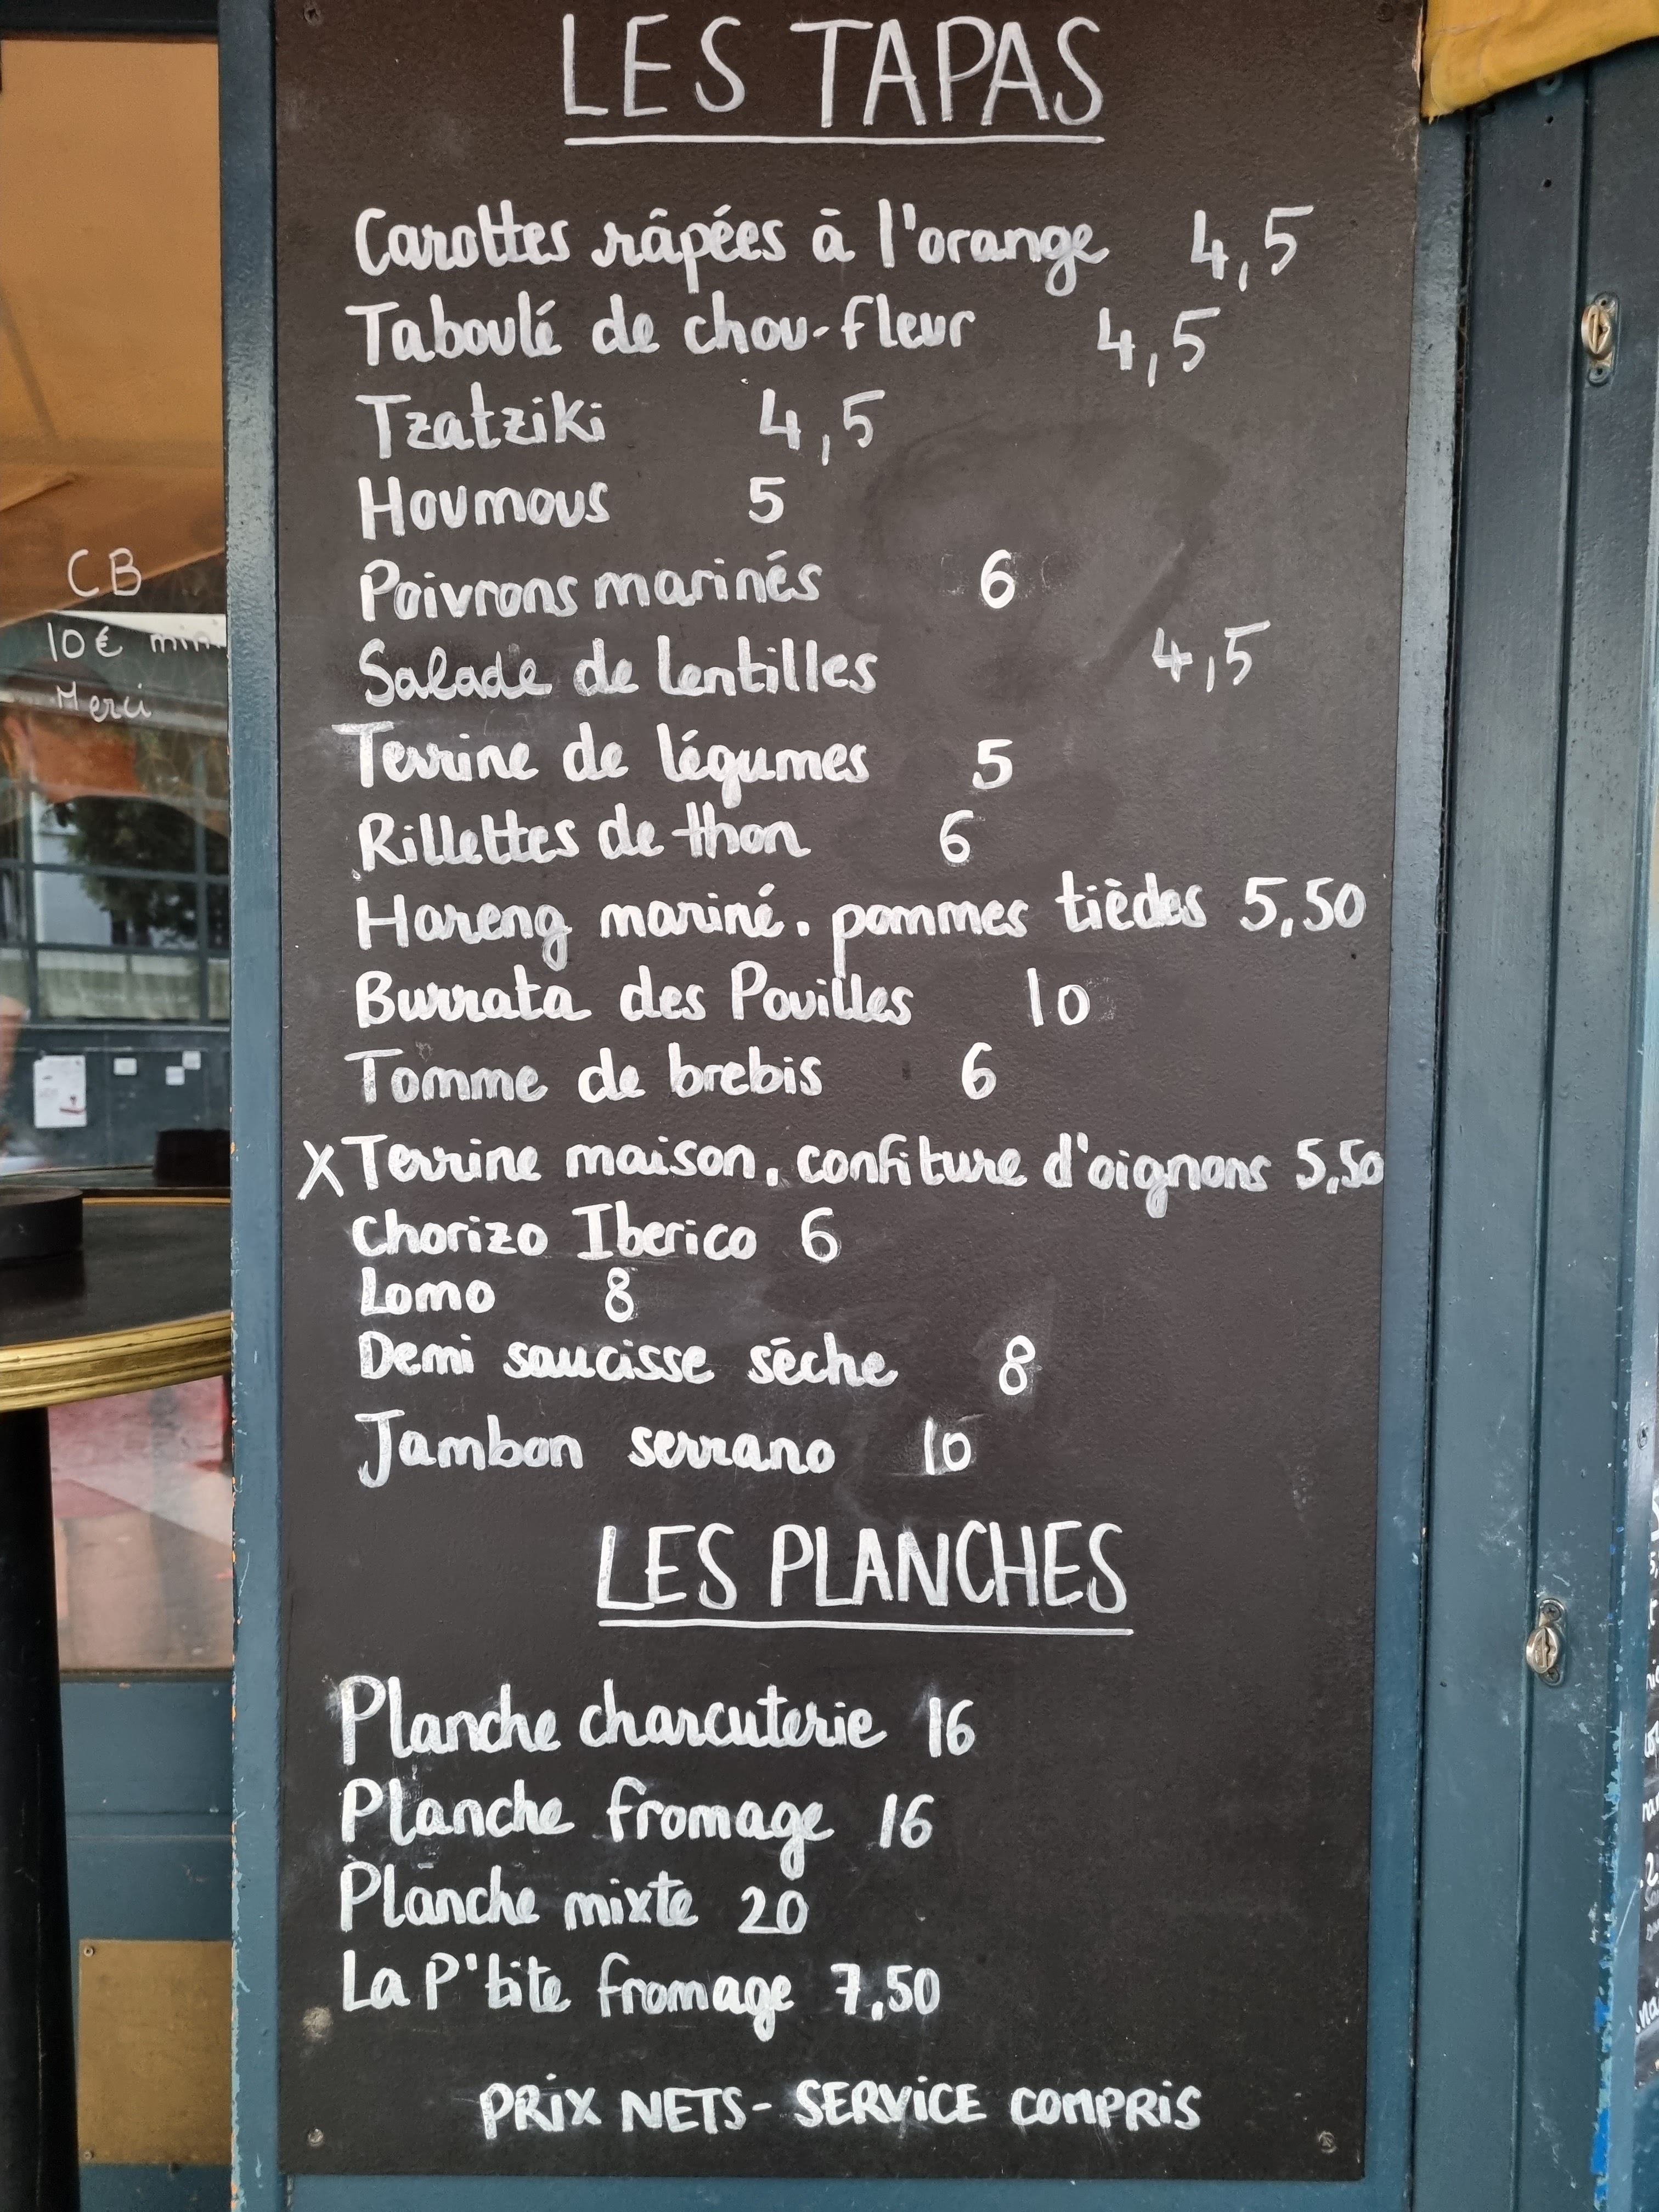 LES TAPAS
Carottes râpées à l'orange 4,5
Taboulé de chou-fleur 4,5
Tzatziki 4,5
Houmous 5
Poivrons marinés 6
Salade de lentilles 4,5
Terrine de légumes 5
Rillettes de thon 6
Hareng mariné. pommes tièdes 5,50
Burrata des Pouilles 10
Tomme de brebis 6
X Terrine maison, confiture d'oignons 5,50
Chorizo Iberico 6
Lomo 8
Demi saucisse sèche 8
Jambon serrano 10
LES PLANCHES
Planche charcuterie 16
Planche fromage 16
Planche mixte 20
La P'tite fromage 7,50
PRIX NETS - SERVICE COMPRIS
CB
10€ min
Merci